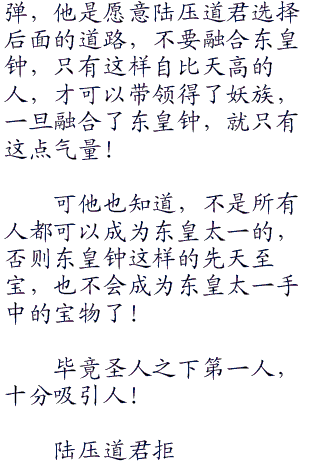 弹，他是愿意陆压道君选择
后面的道路，不要融合东皇
钟，只有这样自比天高的
人，才可以带领得了妖族，
一旦融合了东皇钟，就只有
这点气量！
可他也知道，不是所有
人都可以成为东皇太一的，
否则东皇钟这样的先天至
宝，也不会成为东皇太一手
中的宝物了！
毕竟圣人之下第一人，
十分吸引人！
陆压道君拒